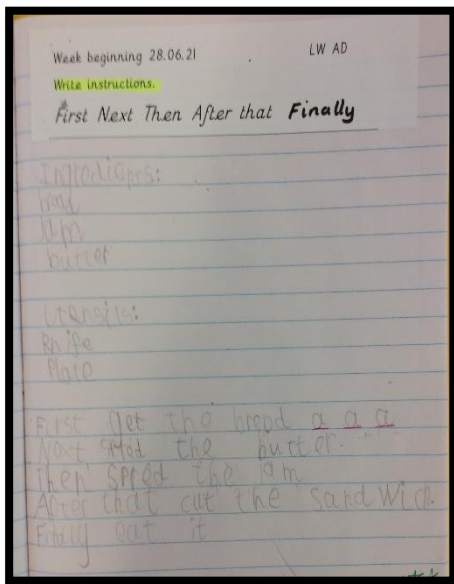 Week beginning 28.06.21 LW AD
Write instructions.
First Next Then After that Finally
Ingredients:
butter
Utensils:
Knife
Plate
First get the bread a a a
Next spred the butter.
Then spred the jam
After that cut the sandwich.
Finally eat it